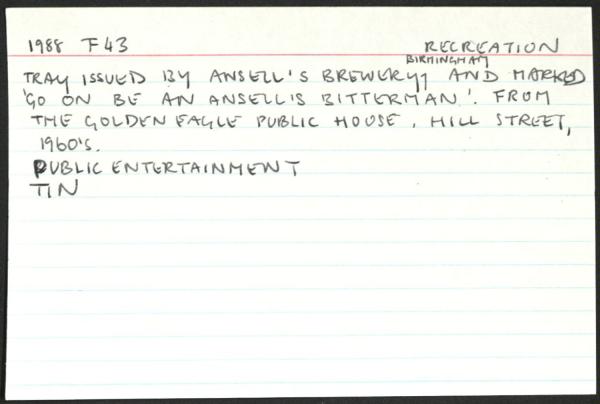 1988 F43 RECREATION
BIRMINGHAM
TRAY ISSUED BY ANSELL'S BREWERY, AND MARKED
'GO ON BE AN ANSELL'S BITTERMAN'. FROM
THE GOLDEN EAGLE PUBLIC HOUSE, HILL STREET,
1960'S.
PUBLIC ENTERTAINMENT
TIN